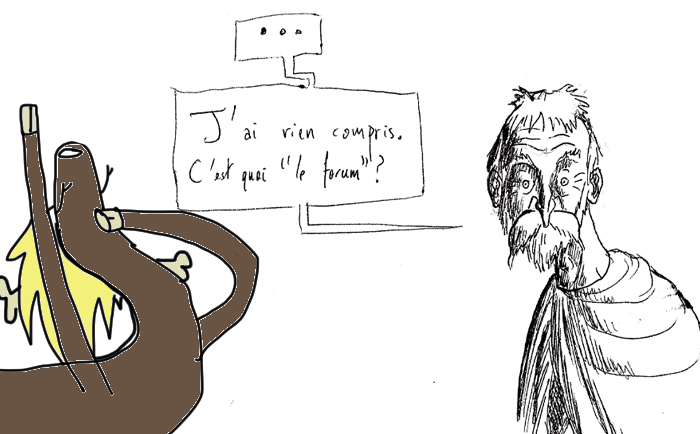 ...
J'ai rien compris.
C'est quoi "le forum"?